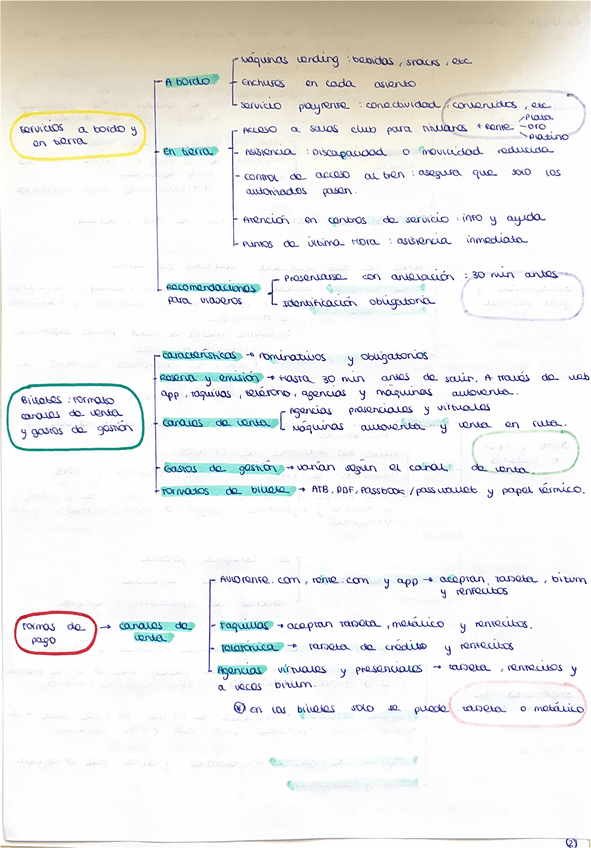 servicios a bordo y
en tierra
A bordo
Máquinas vending : bebidas, snacks, etc
Enchufes en cada asiento
servicio playrenfe : conectividad, contenidos, etc
En tierra
Acceso a salas club para titulares + Renfe
Plata
oro
Platino
Asistencia : Discapacidad o movilidad reducida
Control de acceso al tren : asegura que solo los
autorizados pasen.
Atención en centros de servicio : info y ayuda
Puntos de última Hora : asistencia inmediata
Recomendaciones
para viajeros
Presentarse con antelación : 30 min antes
Identificación obligatoria
Billetes : Formato
canales de venta
y gastos de gestión
Características → nominativos y obligatorios
Reserva y emisión → Hasta 30 min antes de salir. A través de web
app, taquillas, teléfono, agencias y máquinas autoventa.
Canales de venta
Agencias presenciales y virtuales
Máquinas autoventa y venta en ruta.
Gastos de gestión → varían según el canal de venta.
Formatos de billete → ATB, PDF, Passbook/passwallet y papel térmico.
Formas de
pago
→ canales de
venta
AVLORENFE.com, renfe.com y app → aceptan tarjeta, bizum
y renfecitos
Taquillas → aceptan tarjeta, metálico y renfecitos.
Telefónica → Tarjeta de crédito y renfecitos
Agencias virtuales y presenciales → tarjeta, renfecitos y
a veces bizum.
En los billetes solo se puede tarjeta o metálico
(2)